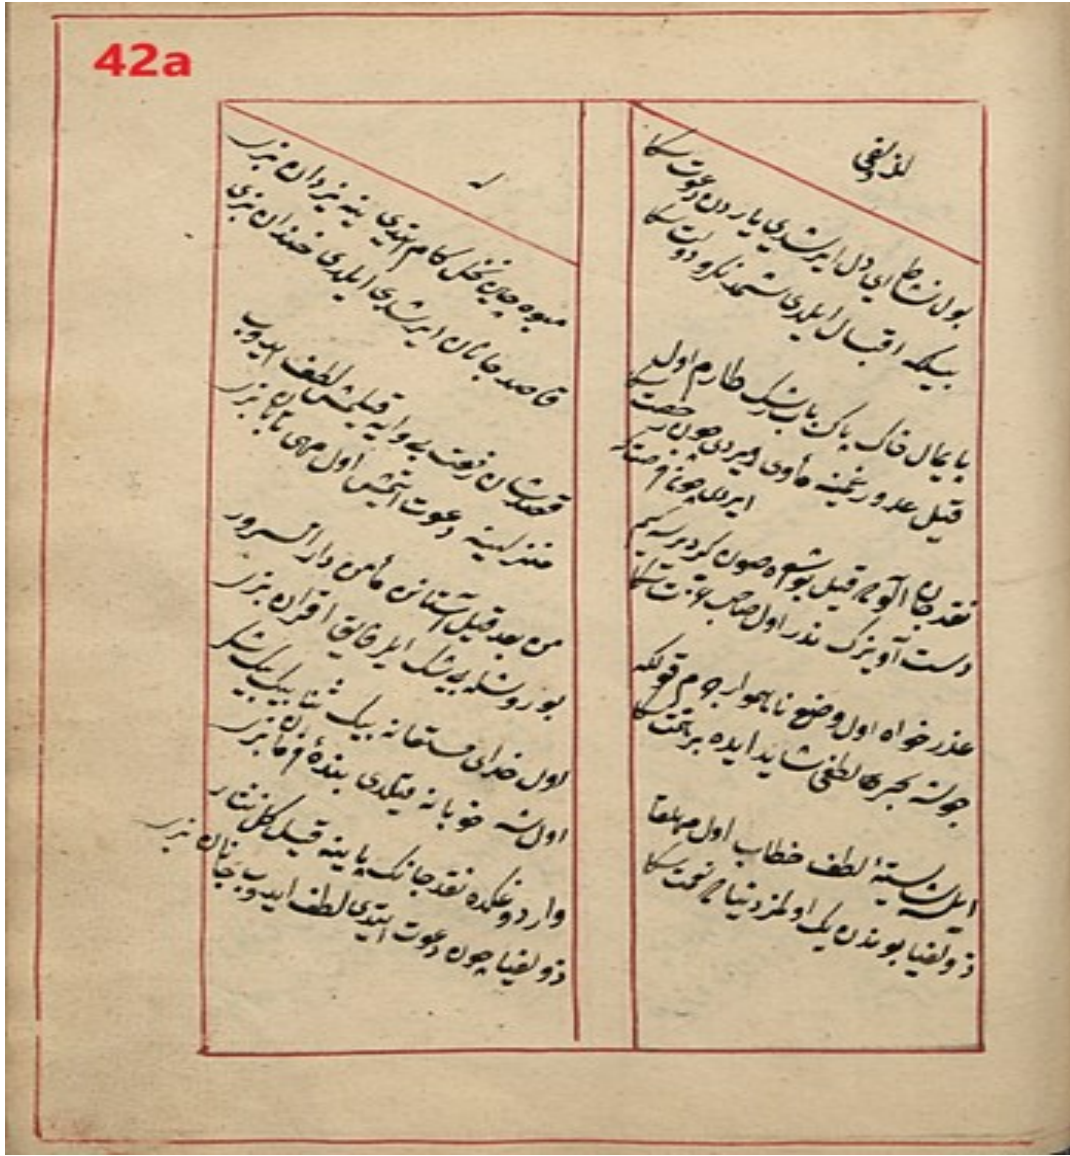 42a
لذولفی
بول نشاط ای دل ایرشدی یاردن دعوت سکا
بیکه اقبال ایلدی شمدنکرو دولت سکا
پایمال خاک پاک باب رشک طارم اول
قیل عدو رغمینه مأوی ایردی چون رخصت سکا
نقد جان آلوب قیل بو شهره صون کردیرسه کیم
دست آویزک ندر اول صاحب عزت سکا
عذر خواه اول وضع ناهموار جرم قولکه
جوشه بحر لطفی شاید ایده بر همت سکا
ایلسه شایستهٔ لطف خطاب اول مهلقا
ذولفیا بوندن یک اولمز دنیاده نعمت سکا
له
میوه چین نخل کام ایتدی ینه یزدان بزی
قاصد جانان ایرشدی ایلدی خندان بزی
قصد شان رفعت بی وایه قیلمش لطف ایدوب
منزلینه دعوت ایتمش اول مهی تابان بزی
من بعد قیل آستانن مأمن دار السرور
بو روشله بی شک ایلر فایق اقران بزی
اول خدای مستعانه بیک ثنا بیک بیک شکر
اول شه خوبانه قیلدی بندهٔ فرمان بزی
واردوغکده نقد جانک پاینه قیل کل نثار
ذولفیا چون دعوت ایتدی لطف ایدوب جانان بزی